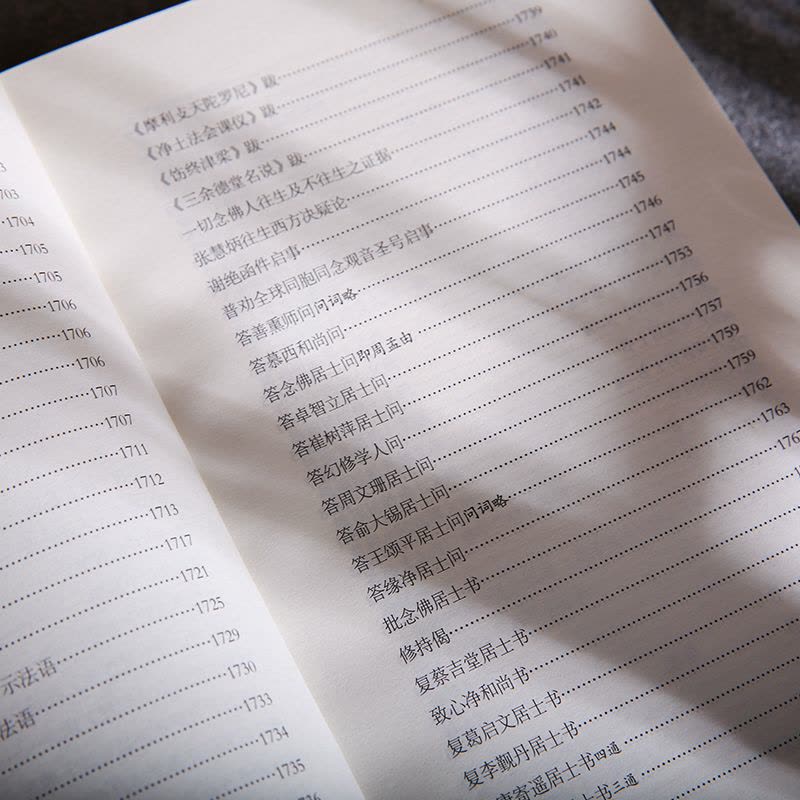 703
1704
1705
1705
1706
1706
1706
1707
1707
1711
1712
1713
1717
1721
1725
示法语……1729
法语……1730
1733
1734
1735
《摩利支天陀罗尼》跋……1739
《净土法会课仪》跋……1740
《饬终津梁》跋……1741
《三余德堂名说》跋……1741
一切念佛人往生及不往生之证据……1742
张慧炳往生西方决疑论……1744
谢绝函件启事……1744
普劝全球同胞同念观音圣号启事……1745
答善熏师问问词略……1746
答慕西和尚问……1747
答念佛居士问即周孟由……1753
答卓智立居士问……1756
答崔树萍居士问……1757
答幻修学人问……1759
答周文珊居士问……1759
答俞大锡居士问……1762
答王颂平居士问问词略……1763
答缘净居士问……
批念佛居士书……
修持偈……
复蔡吉堂居士书……
致心净和尚书……
复葛启文居士书……
复李觐丹居士书……
寄遥居士书四通……
居士书三通……